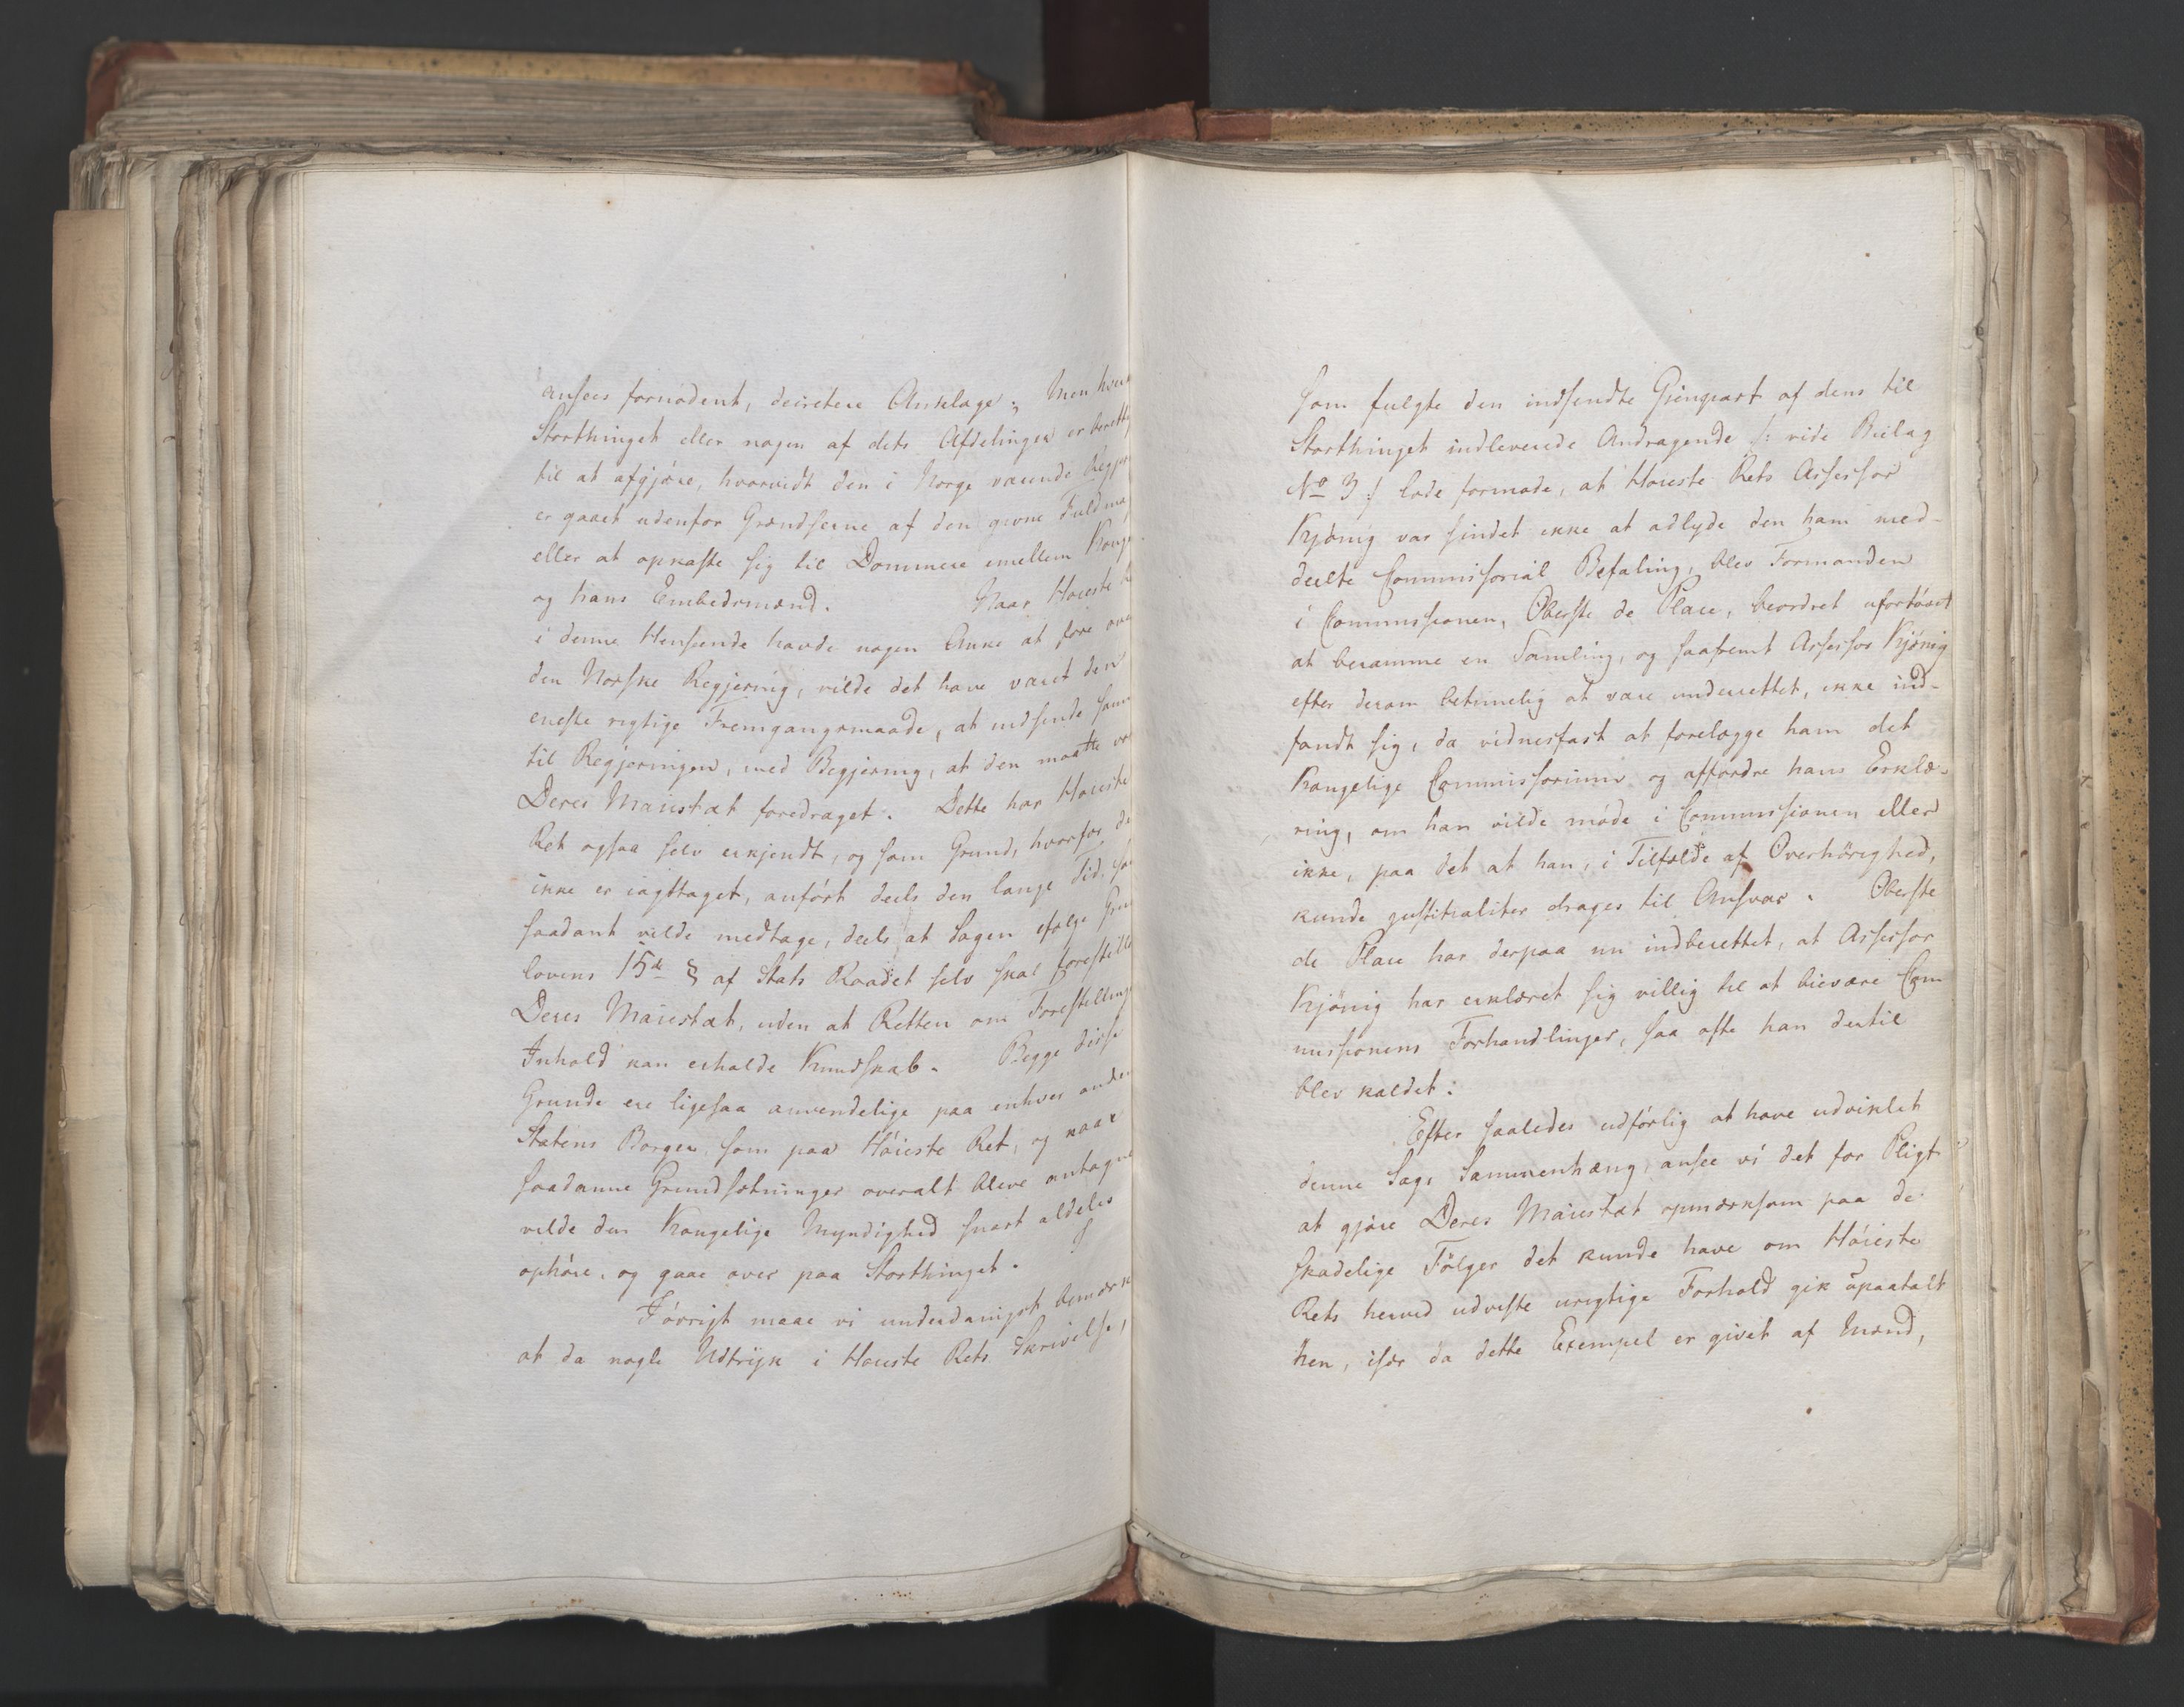 ansees fornødent, decretere Anklage; Men hver
Storthinget eller nogen af dets Afdelinger er beretti
til at afgjøre, hvorvidt den i Norge værende Regje
er gaaet udenfor Grændserne af den givne Fuldmag
eller at opkaste sig til Dommere imellem Konge
og hans Embedsmænd. Naar Høieste R
i denne Henseende havde nogen Anke at føre over
den Norske Regjering, vilde det have været den
eneste rigtige Fremgangsmaade, at indsende sam
til Regjeringen, med Begjering, at den maatte vor
Deres Maiestæt foredraget. Dette har Høieste
Ret ogsaa selv erkjendt, og som Grund, hvorfor de
ikke er iagttaget, anført deels den lange Tid, so
saadant vilde medtage, deels at Sagen ifølge Grun
lovens 15de § af Stats Raadet selv skal forestilles
Deres Maiestæt, uden at Retten om Forestilling
Inhold kan erholde Kundskab. Begge disse
Grunde ere ligesaa anvendelige paa enhver anden
Statens Borger, som paa Høieste Ret, og naar
saadanne Grundsætninger overalt bleve antagne
vilde den Kongelige Myndighed snart aldeles
ophøre, og gaae over paa Storthinget.
Iøvrigt maae vi underdanigst bemærk
at da nogle Udtryk i Høieste Rets Skrivelse,
som fulgte den indsendte Gienpart af dens til
Storthinget indleverede Andragende /: vide Bielag
No 3 :/ lode formode, at Høieste Rets Assessor
Kjønig var sindet ikke at adlyde den ham med-
deelte Commissorial Befaling, blev Formanden
i Commissionen, Oberste de Place, beordret ufortøvet
at beramme en Samling, og saafremt Assessor Kjønig
efter derom betimelig at være underrettet, ikke ind-
fandt sig, da vidnesfast at forelægge ham det
Kongelige Commissorium og affordre hans Erklæ-
ring, om han vilde møde i Commissionen eller
ikke, paa det at han, i Tilfælde af Overhørighed,
kunde justitialiter drages til Ansvar. Oberste
de Place har derpaa nu indberettet, at Assessor
Kjønig har erklæret sig villig til at bievære Com
missionens Forhandlinger, saa ofte han dertil
blev kaldet.
Efter saaledes udførlig at have udviklet
denne Sags Sammenhæng, ansee vi det for Pligt
at gjøre Deres Maiestæt opmærksom paa de
skadelige Følger det kunde have om Høieste
Rets herved udviste urigtige Forhold gik upaatalt
hen, især da dette Exempel er givet af Mænd,